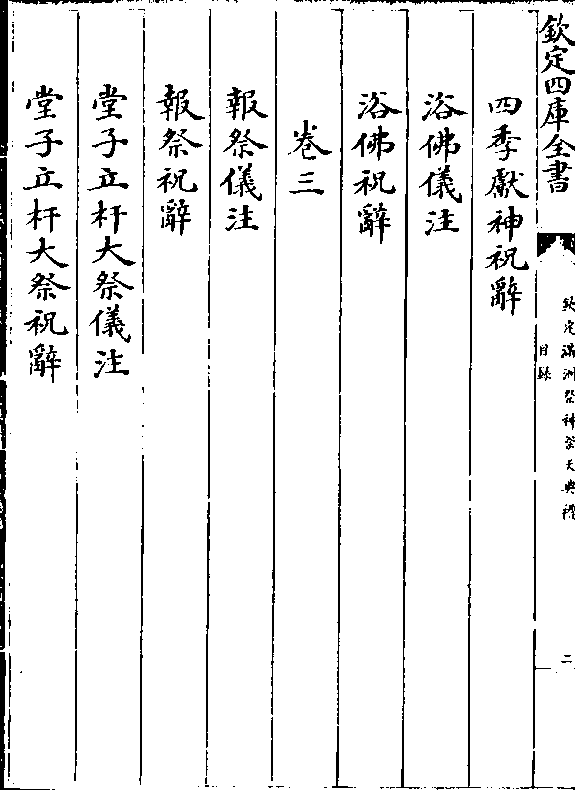 欽定四庫全書
欽定滿洲祭神祭天典禮
目録
二
四季獻神祝辭
浴佛儀注
浴佛祝辭
卷三
報祭儀注
報祭祝辭
堂子立杆大祭儀注
堂子立杆大祭祝辭